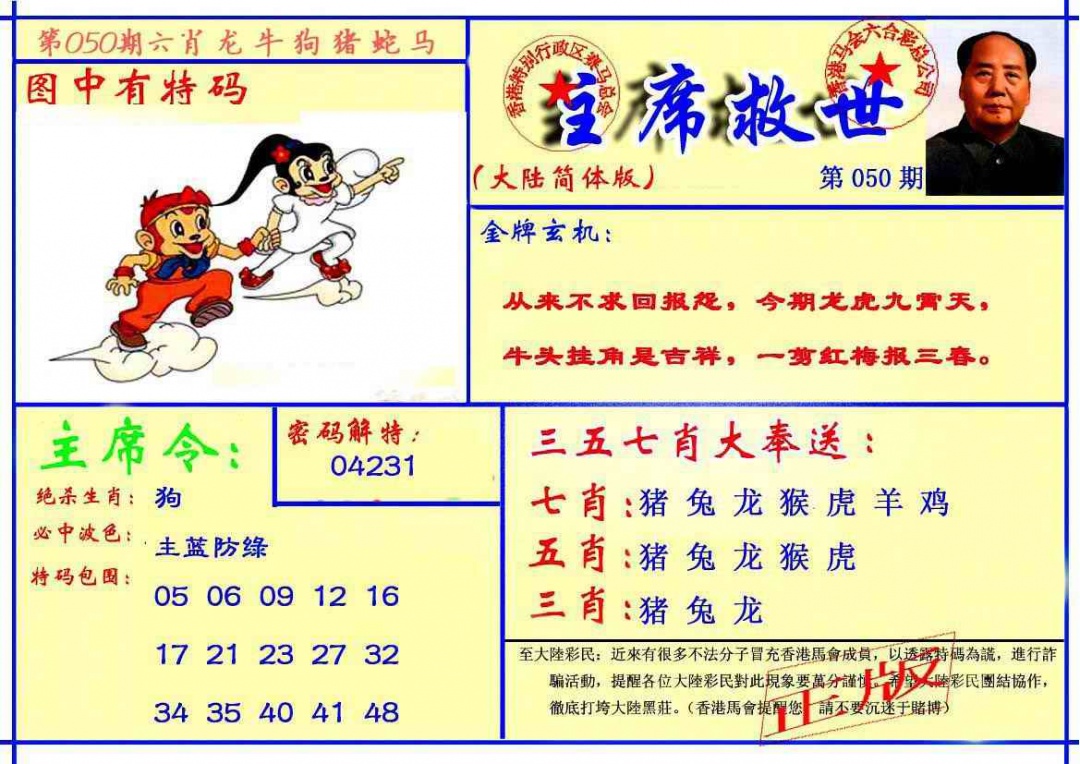 第050期六肖龙牛狗猪蛇马
图中有特码
香港特别行政区赛马总会
香港马会六合彩总公司
主席救世
(大陆简体版)
第 050 期
金牌玄机:
从来不求回报怨，今期龙虎九霄天，
牛头挂角是吉祥，一剪红梅报三春。
主席令:
绝杀生肖: 狗
必中波色: 主蓝防绿
特码包围:
05 06 09 12 16
17 21 23 27 32
34 35 40 41 48
密码解特:
04231
三五七肖大奉送:
七肖:猪 兔 龙 猴 虎 羊 鸡
五肖:猪 兔 龙 猴 虎
三肖:猪 兔 龙
至大陸彩民：近來有很多不法分子冒充香港馬會成員，以透露特码為謊，進行詐
騙活動，提醒各位大陸彩民對此現象要萬分謹慎。希望大陸彩民團結協作，
徹底打垮大陸黑莊。（香港馬會提醒您：請不要沉迷于賭博）
正版